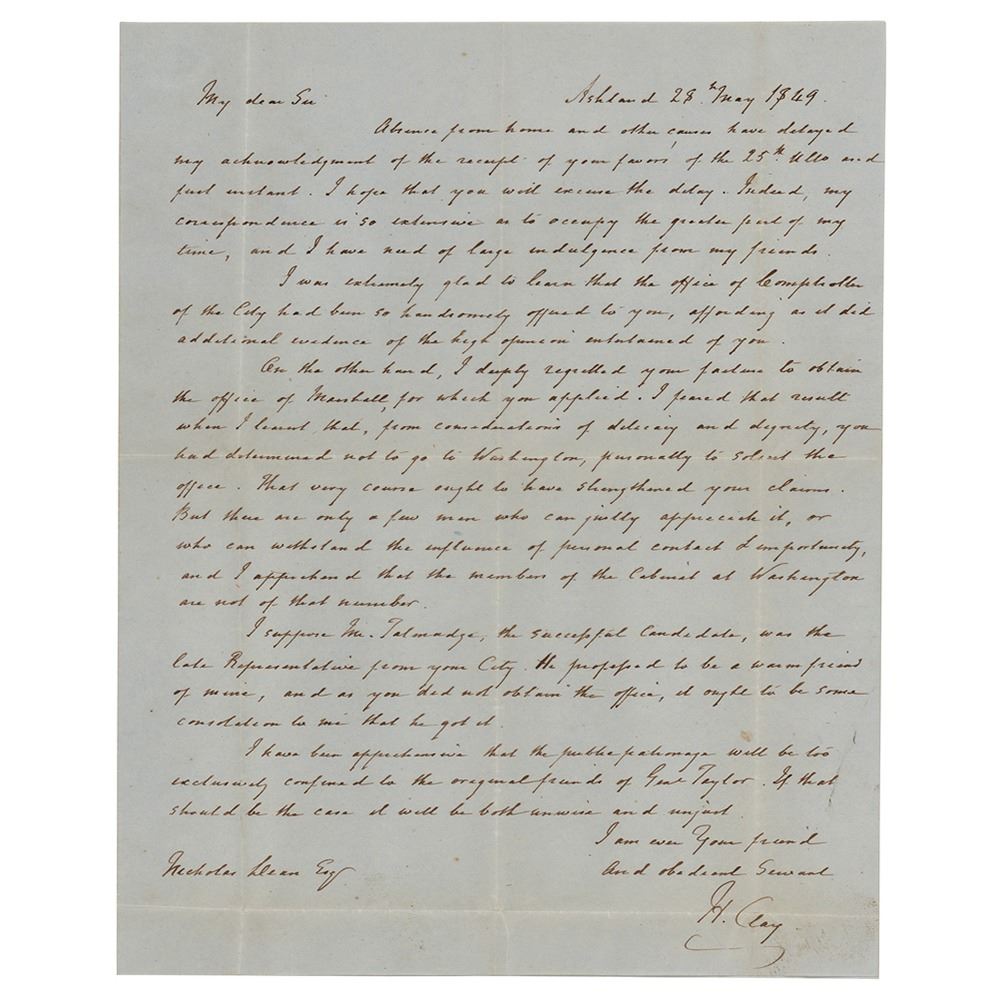 My dear Sir Ashland 28th May 1849.
Absence from home and other causes have delayed
my acknowledgment of the receipt of your favors of the 25th Ulto and
first instant. I hope that you will excuse the delay. Indeed, my
correspondence is so extensive as to occupy the greater part of my
time, and I have need of large indulgence from my friends.
I was extremely glad to learn that the office of Comptroller
of the City had been so handsomely offered to you, affording as it did
additional evidence of the high opinion entertained of you.
On the other hand, I deeply regretted your failure to obtain
the office of Marshall, for which you applied. I feared that result
when I learnt, that, from considerations of delicacy and dignity, you
had determined not to go to Washington, personally to solicit the
office. That very course ought to have strengthened your claims.
But there are only a few men who can justly appreciate it, or
who can withstand the influence of personal contact & importunity,
and I apprehend that the members of the Cabinet at Washington
are not of that number.
I suppose Mr. Talmadge, the successful Candidate, was the
late Representative from your City. He professed to be a warm friend
of mine, and as you did not obtain the office, it ought to be some
consolation to me that he got it.
I have been apprehensive that the public patronage will be too
exclusively confined to the original friends of Genl Taylor. If that
should be the case it will be both unwise and unjust.
I am ever Your friend
And obedient Servant
Nicholas Dean Esq
H. Clay.